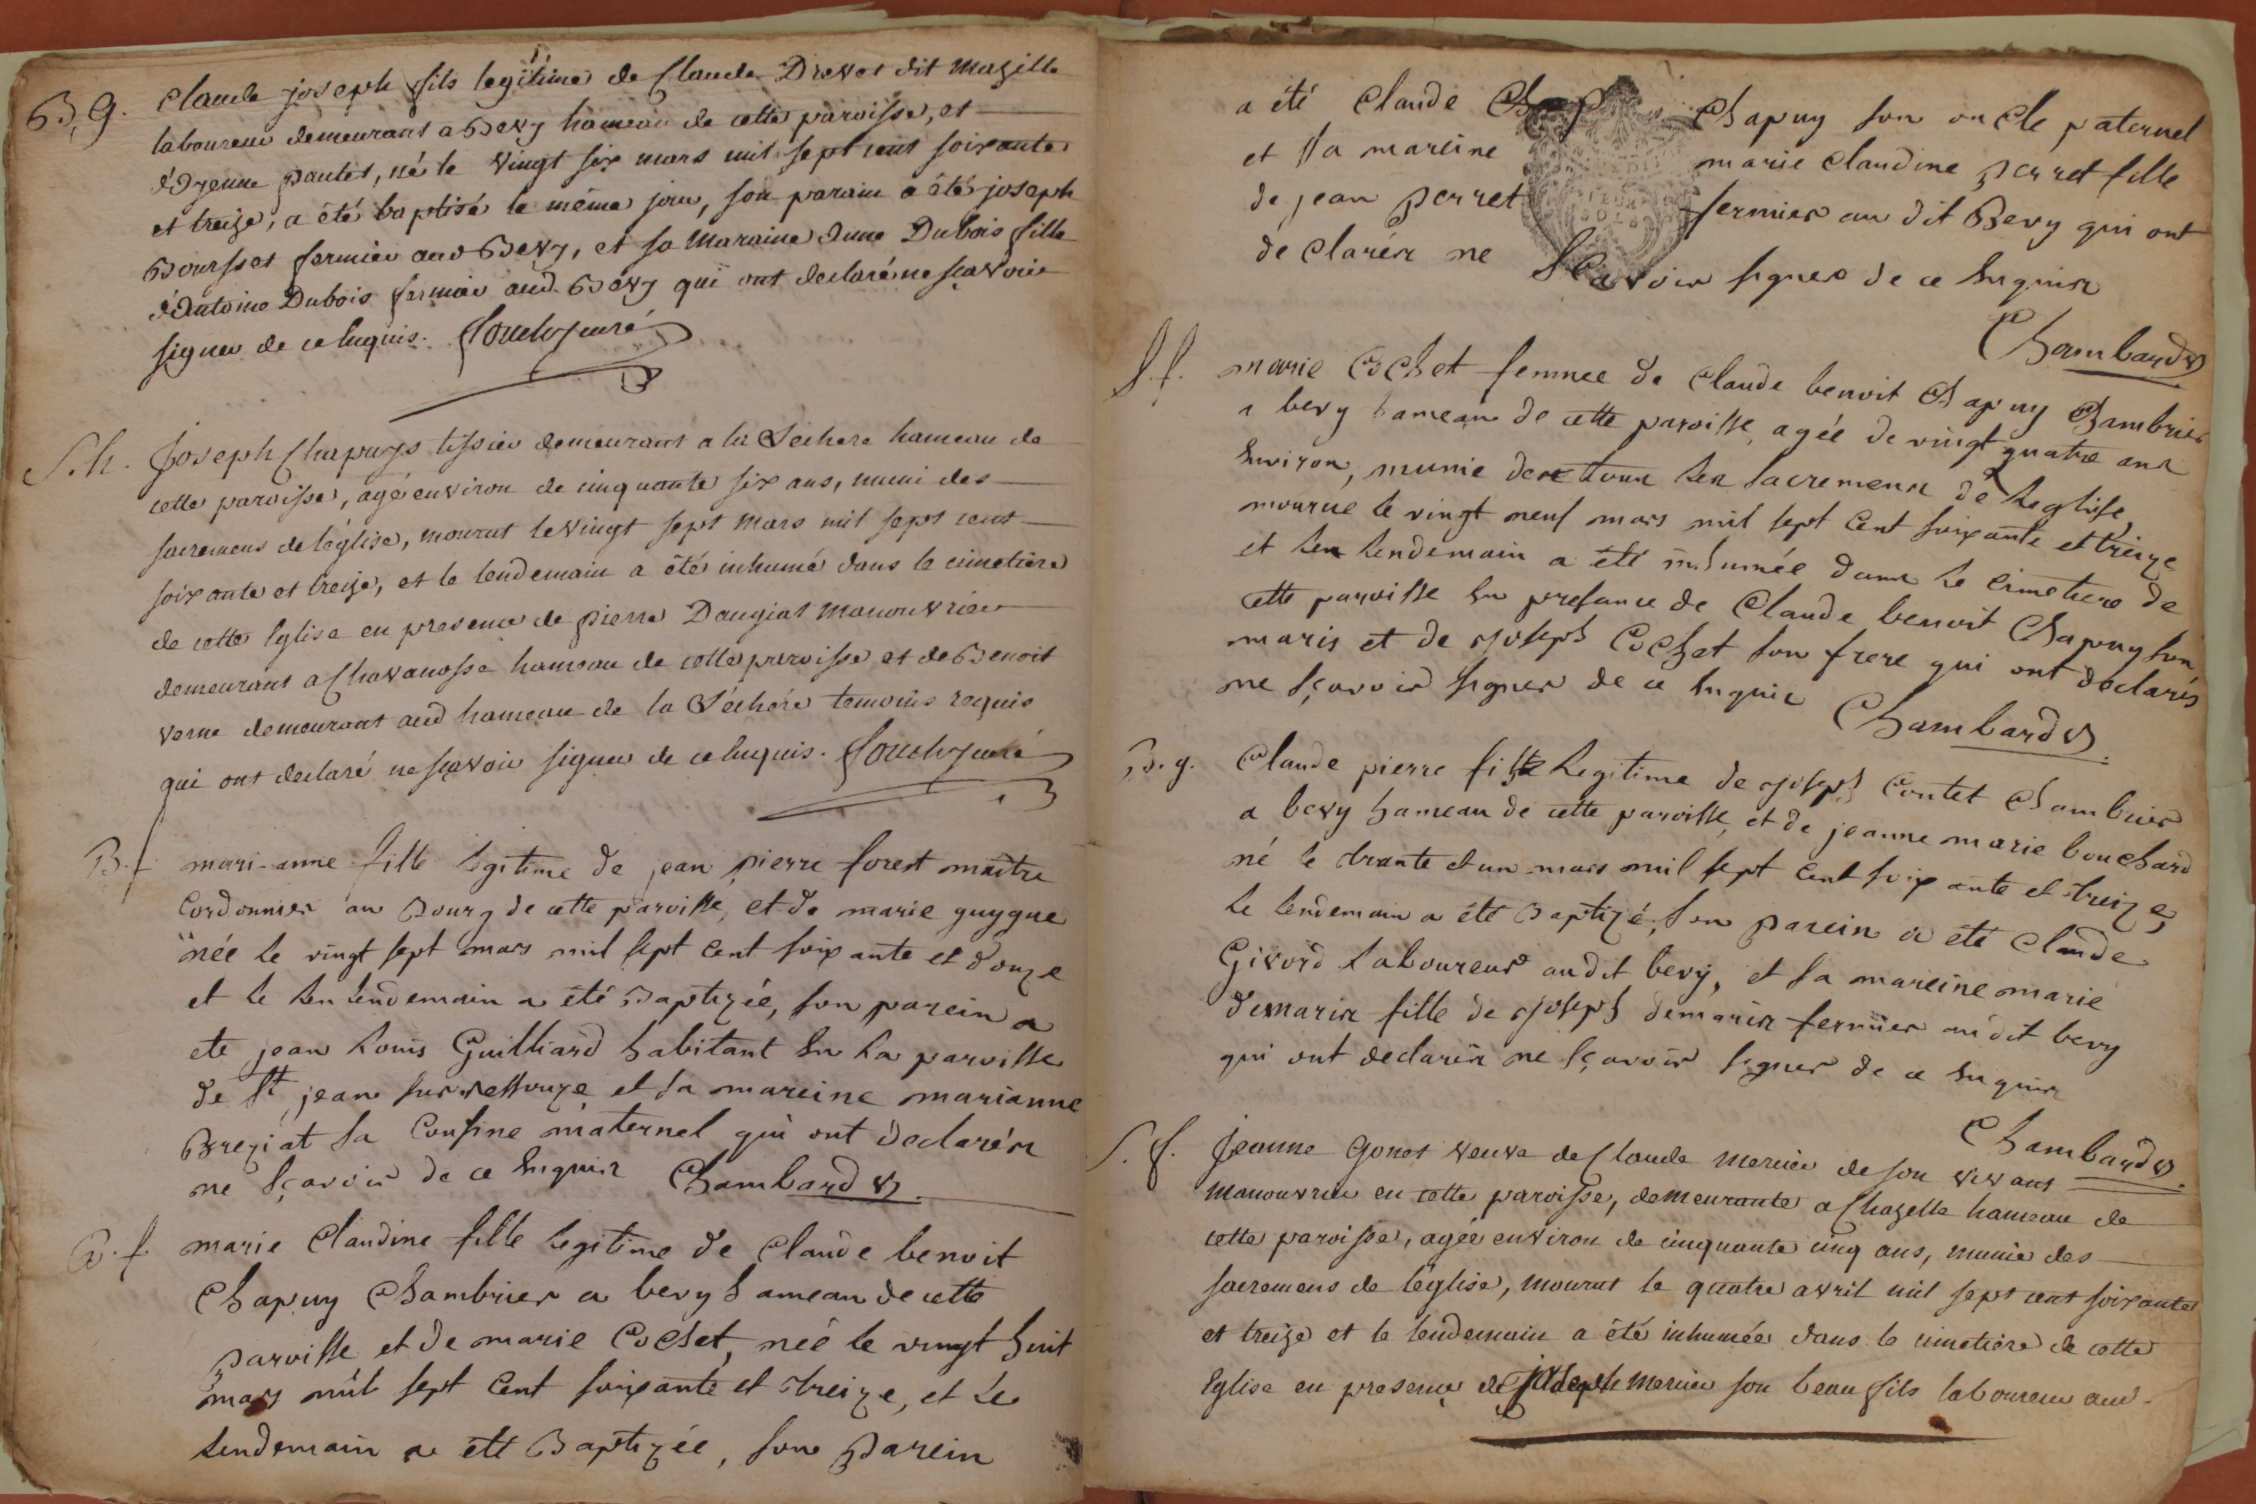 B. g. Claude joseph fils legitime de Claude Drevet dit Mazille
laboureur demeurant a Bevy hameau de cette paroisse, et
pautet, né le vingt six mars mil sept cent soixante
et treize, a été baptisé le même jour, son parain a été joseph
Boursset fermier aud Bevy, et sa Maraine Dubois fille
d'Antoine Dubois fermier aud. Bevy qui ont declaré ne sçavoir
signer de ce enquis. curé
S. h. Joseph Chapuys tissier demeurant a la Séchere hameau de
cette paroisse, agé environ de cinquante six ans, muni des
sacremens de l'église, mourut le vingt sept mars mil sept cent
soixante et treize, et le lendemain a été inhumé dans le cimetiere
de cette Eglise en presence de pierre Daugiat Manouvrier
demeurant a Chavanosse hameau de cette paroisse et de Benoit
verne demeurant aud hameau de la Séchére temoins requis
qui ont declaré ne sçavoir signer de ce enquis. curé
B. f mari-anne fille legitime de jean pierre forest maître
Cordonnier au Bourg de cette paroisse, et de marie guygue
née le vingt sept mars mil sept cent soixante et douze
et le len lendemain a été Baptizée, son parein a
ete jean Louis Guilliard habitant en la paroisse
de St jean sur ressouze et sa mareine marianne
Breziat sa Cousine maternel qui ont declarés
ne sçavoir de ce enquis Chambard v.
B. f marie Claudine fille legitime de Claude benoit
Chapuy Chambrier a bevy hameau de cette
paroisse et de marie Cochet, née le vingt huit
mars mil sept cent soixante et treize, et le
lendemain a été Baptizée, son Parein
a été Claude Chapuy son oncle paternel
et sa mareine marie Claudine perret fille
de jean perret fermier au dit Bevy qui ont
declarés ne sçavoir signer de ce enquis
Chambard v
S. f. marie Cochet femme de Claude benoit Chapuy Chambrier
a bevy hameau de cette paroisse, agée de vingt quatre ans
environ, munie de tous les sacremens de leglise,
mourue le vingt neuf mars mil sept cent soixante et treize
et len lendemain a été inhumée dans le cimetiere de
cette paroisse en presance de Claude benoit Chapuy son
maris et de joseph Cochet son frere qui ont declarés
ne sçavoir signer de ce enquis Chambard v.
B. g. Claude pierre fils legitime de joseph Contet Chambrier
a bevy hameau de cette paroisse, et de jeanne marie bouchard
né le trante et un mars mil sept cent soixante et treize,
le lendemain a été Baptizé, son parein a été Claude
Givord Laboureur audit bevy, et sa mareine marie
demaris fille de joseph demaris fermier audit bevy
qui ont declarés ne sçavoir signer de ce enquis
Chambard v.
S. f. Jeanne Gonet veuve de Claude Mercier de son vivant
Manouvrier en cette paroisse, demeurante a Chazelle hameau de
cette paroisse, agée environ de cinquante cinq ans, munie des
sacremens de l'église, mourut le quatre avril mil sept cent soixante
et treize et le lendemain a été inhumée dans le cimetiere de cette
Eglise en presence de joseph Mercier son beau fils laboureur aud.